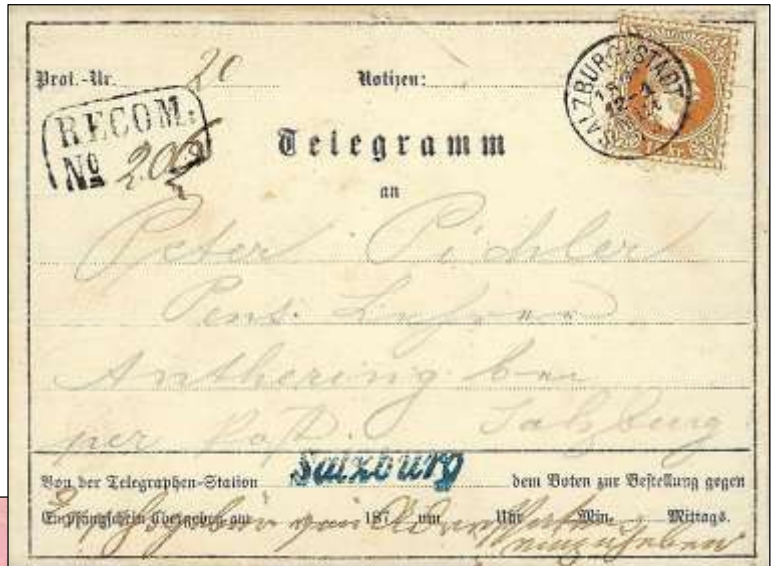 Prot.-Nr. 20 Notizen:
SALZBURG-STADT
RECOM:
No 206
Telegramm
an
Peter Pichler
Pens. Lehrer
Anthering bei
per Post. Salzburg
Von der Telegraphen-Station Salzburg dem Boten zur Bestellung gegen
Empfangschein übergeben am 187 um Uhr Min. Mittags.
einzuheben